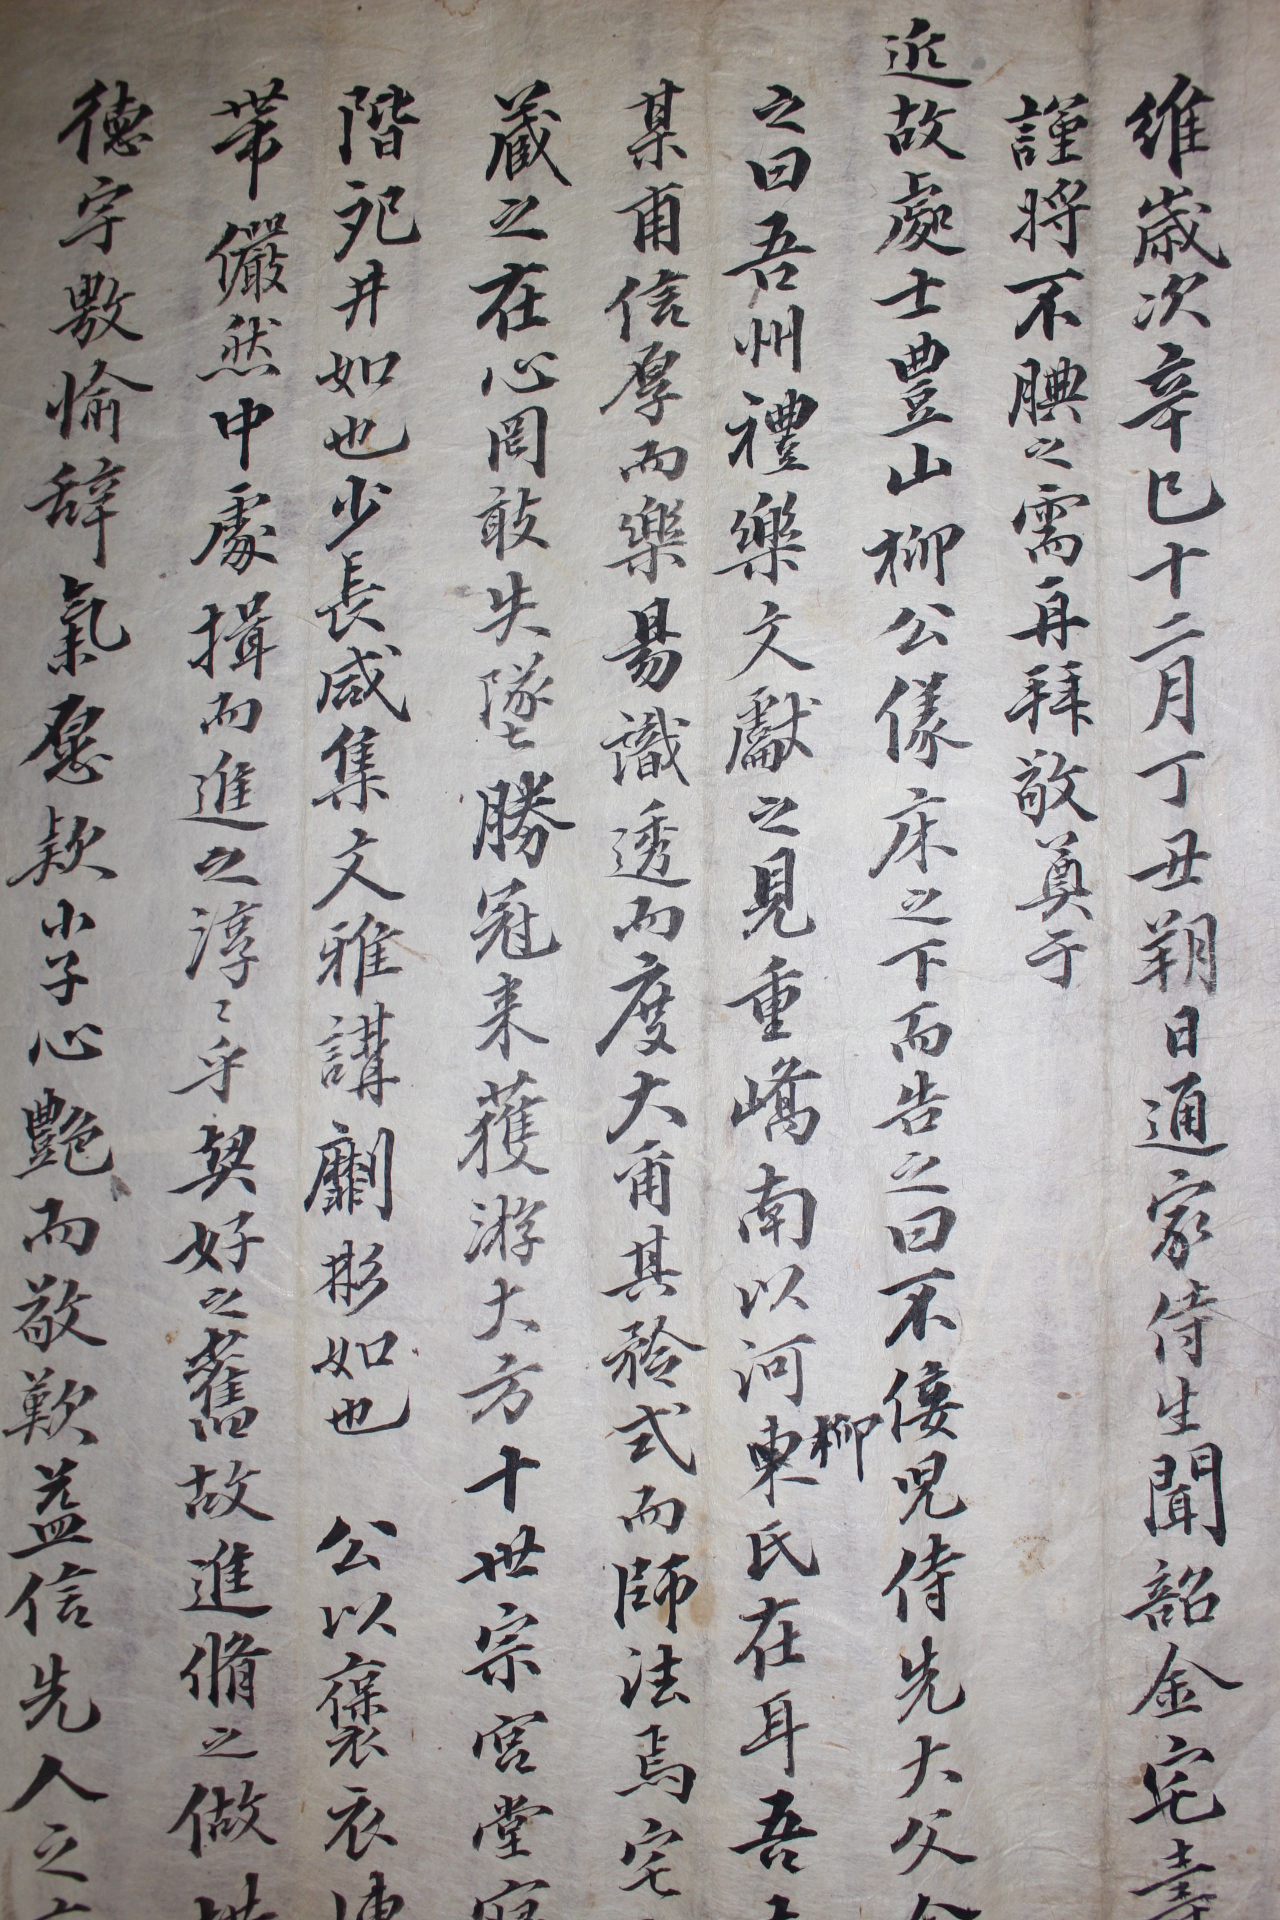 維歲次辛巳十二月丁丑朔日通家侍生聞韶金宅壽
謹將不腆之需再拜敬奠于
近故處士豊山柳公像床之下而告之曰不佞兒侍先大父
之曰吾州禮樂文獻之見重嶠南以河東柳氏在耳吾
某甫信厚而樂易識透而度大甫其矜式而師法焉宅
藏之在心罔敢失墜勝冠来獲游大方十世宗宮堂
階戺井如也少長咸集文雅講劘彬如也 公以褒衣博
帶儼然中處揖而進之淳〻乎契好之舊故進脩之做
德宇敷愉辞氣懇款小子心艶而敬歎益信先人之